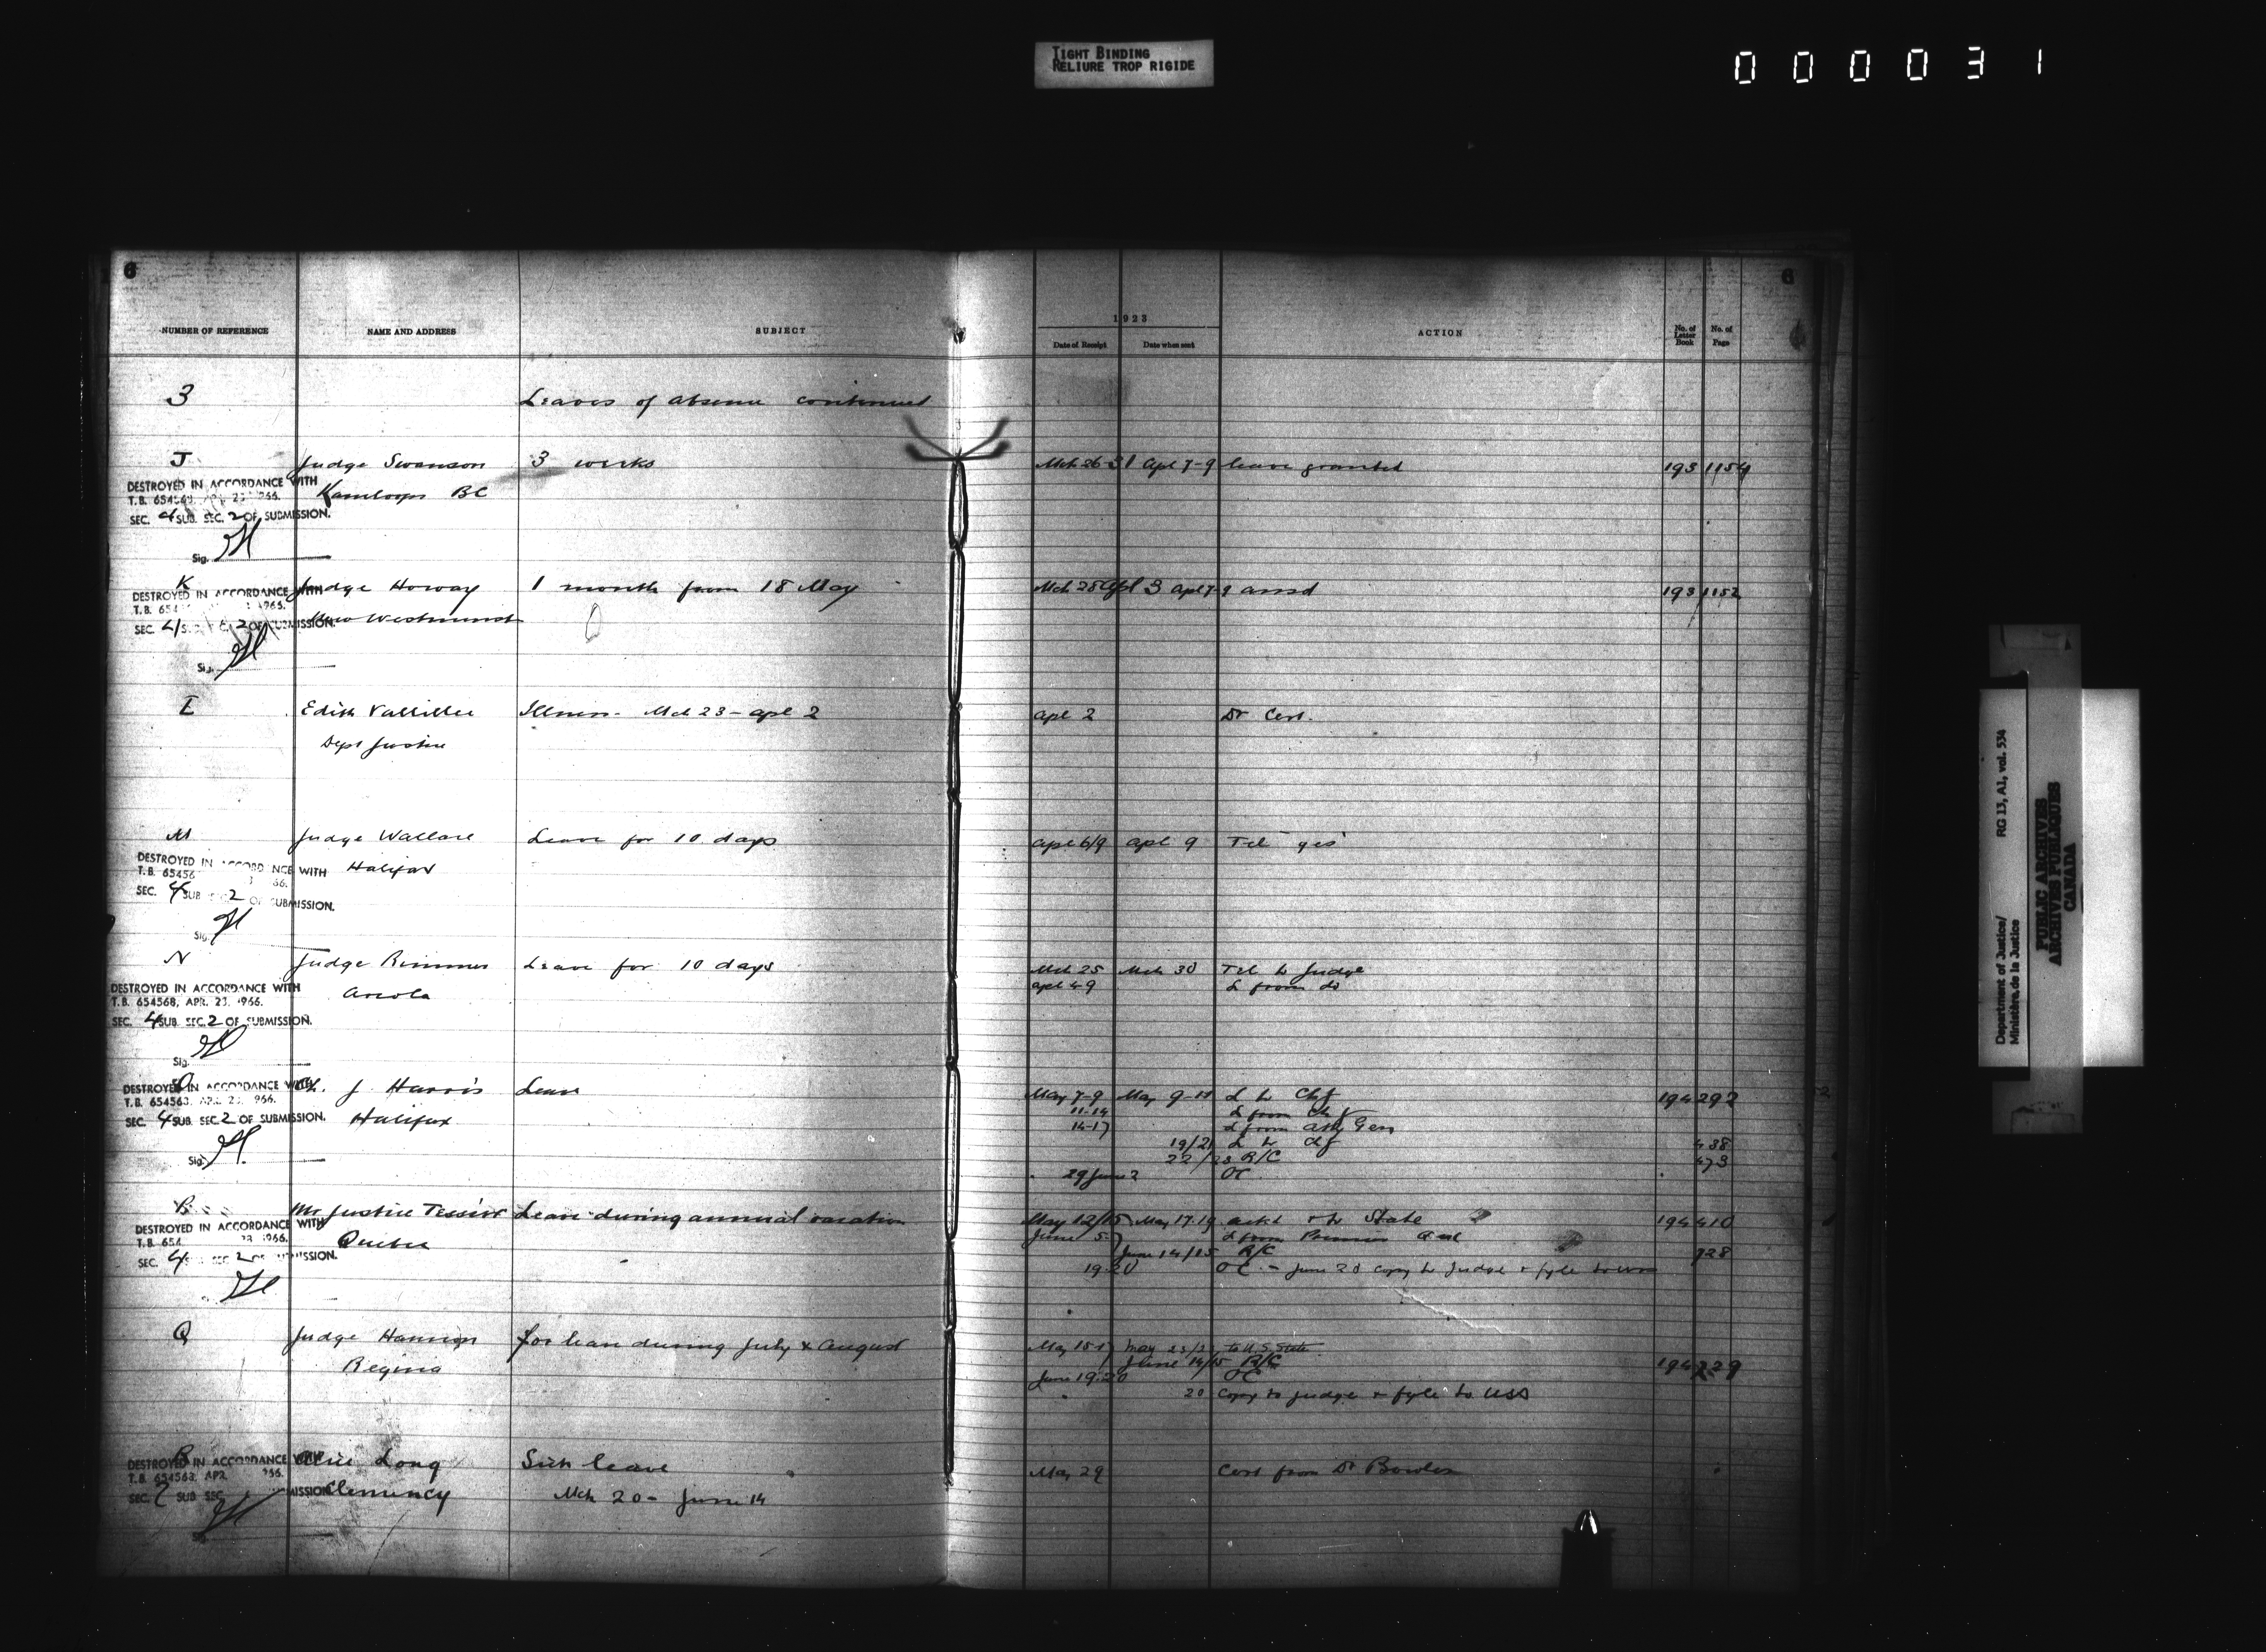 TIGHT BINDING
RELIURE TROP RIGIDE
000031
6
6
NUMBER OF REFERENCE NAME AND ADDRESS SUBJECT
1923
Date of Receipt Date when sent ACTION No. of Letter Book No. of Page
3 Leaves of absence continued
J Judge Swanson 3 weeks Mch 26 31 Apl 7-9 leave granted 193 1154
DESTROYED IN ACCORDANCE WITH
Kamloops BC
SEC. 4 SUB. SEC. 2 OF SUBMISSION.
Sig.
K Judge Howay 1 month from 18 May Mch 28 Apl 3 Apl 7-9 ansd 193 1152
DESTROYED IN ACCORDANCE WITH
New Westminst
SEC. 4 2 OF SUBMISSION.
Sig.
Edith Dr Cert.
Illness - Mch 23 - Apl 2 Apl 2
Dept Justice
M Judge Wallace Leave for 10 days Apl 6/9 Apl 9 Tel "yes"
DESTROYED IN ACCORDANCE WITH Halifax
SEC. 4 SUB 2 OF SUBMISSION.
Sig.
N Judge Rimmer Leave for 10 days Mch 25 Mch 30 Tel to Judge
Apl 4-9 L from do
DESTROYED IN ACCORDANCE WITH Arcola
T.B. 654568, APR. 23, 1966.
SEC. 4 SUB. SEC. 2 OF SUBMISSION.
Sig.
DESTROYED IN ACCORDANCE WITH Ch. J. Harris Leave May 7-9 May 9-11 L to Chf 194 292
11-14 L from Chf
14-17 L from Atty Gen
SEC. 4 SUB. SEC. 2 OF SUBMISSION. Halifax
19/21 L to Chf 438
22/23 R/C 473
Sig. 29 June 2 OC
Mr Justice Tessier Leave during annual vacation May 12/15 May 17-19 to State 194 410
DESTROYED IN ACCORDANCE WITH June 5 L from
Quebec June 14/15 R/C 728
SEC. 4 SEC 2 OF SUBMISSION.
19-20 OC - June 20 copy to Judge & fyle to
Q Judge Hannon for leave during July & August May 15-17 May to U.S. State
Regina June 14/15 R/C 194 729
June 19-20 OC
20 Copy to Judge & fyle to USS
R Long Sick leave May 29 Cert from Dr
DESTROYED IN ACCORDANCE WITH
Clemency Mch 20 - June 14
Department of Justice/ RG 13, A1, vol. 534
Ministère de la Justice
PUBLIC ARCHIVES
ARCHIVES PUBLIQUES
CANADA